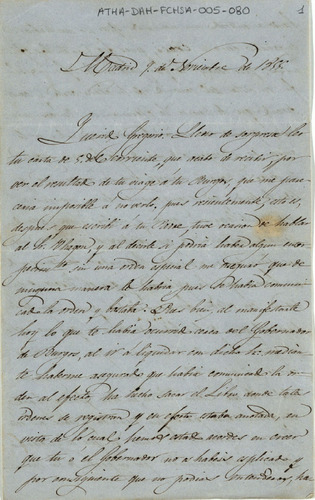 ATHA-DAH-FCHSA-005-080
1
Madrid 9 de Noviembre de 1855
Querido Gregorio: Lleno de sorpresa leo
tu carta de 5 del corriente, que acabo de recibir, por
ver el resultado de tu viage á Burgos, que me pare-
cería imposible á no verlo, pues recientemente, esto es,
después que escribí á tu tuve ocasión de hablar
al Sr. y al decirle si podría haber algun
sin una orden especial me que de
ninguna manera lo habría pues la había comuni-
cada la orden y bastaba: Pues bien, al manifestarle
hoy lo que te había ocurrido con el Gobernador
de Burgos, al ir a liquidar con dicho Sr.
haberme asegurado que había comunicado la or-
den al efecto, ha hecho sacar el Libro donde tales
ordenes se registran y en efecto estaba anotada, en
vista de lo cual hemos estado acordes en creer
que tu o el Gobernador no os habeis esplicado y
por consiguiente que no pudisteis entenderos, pa